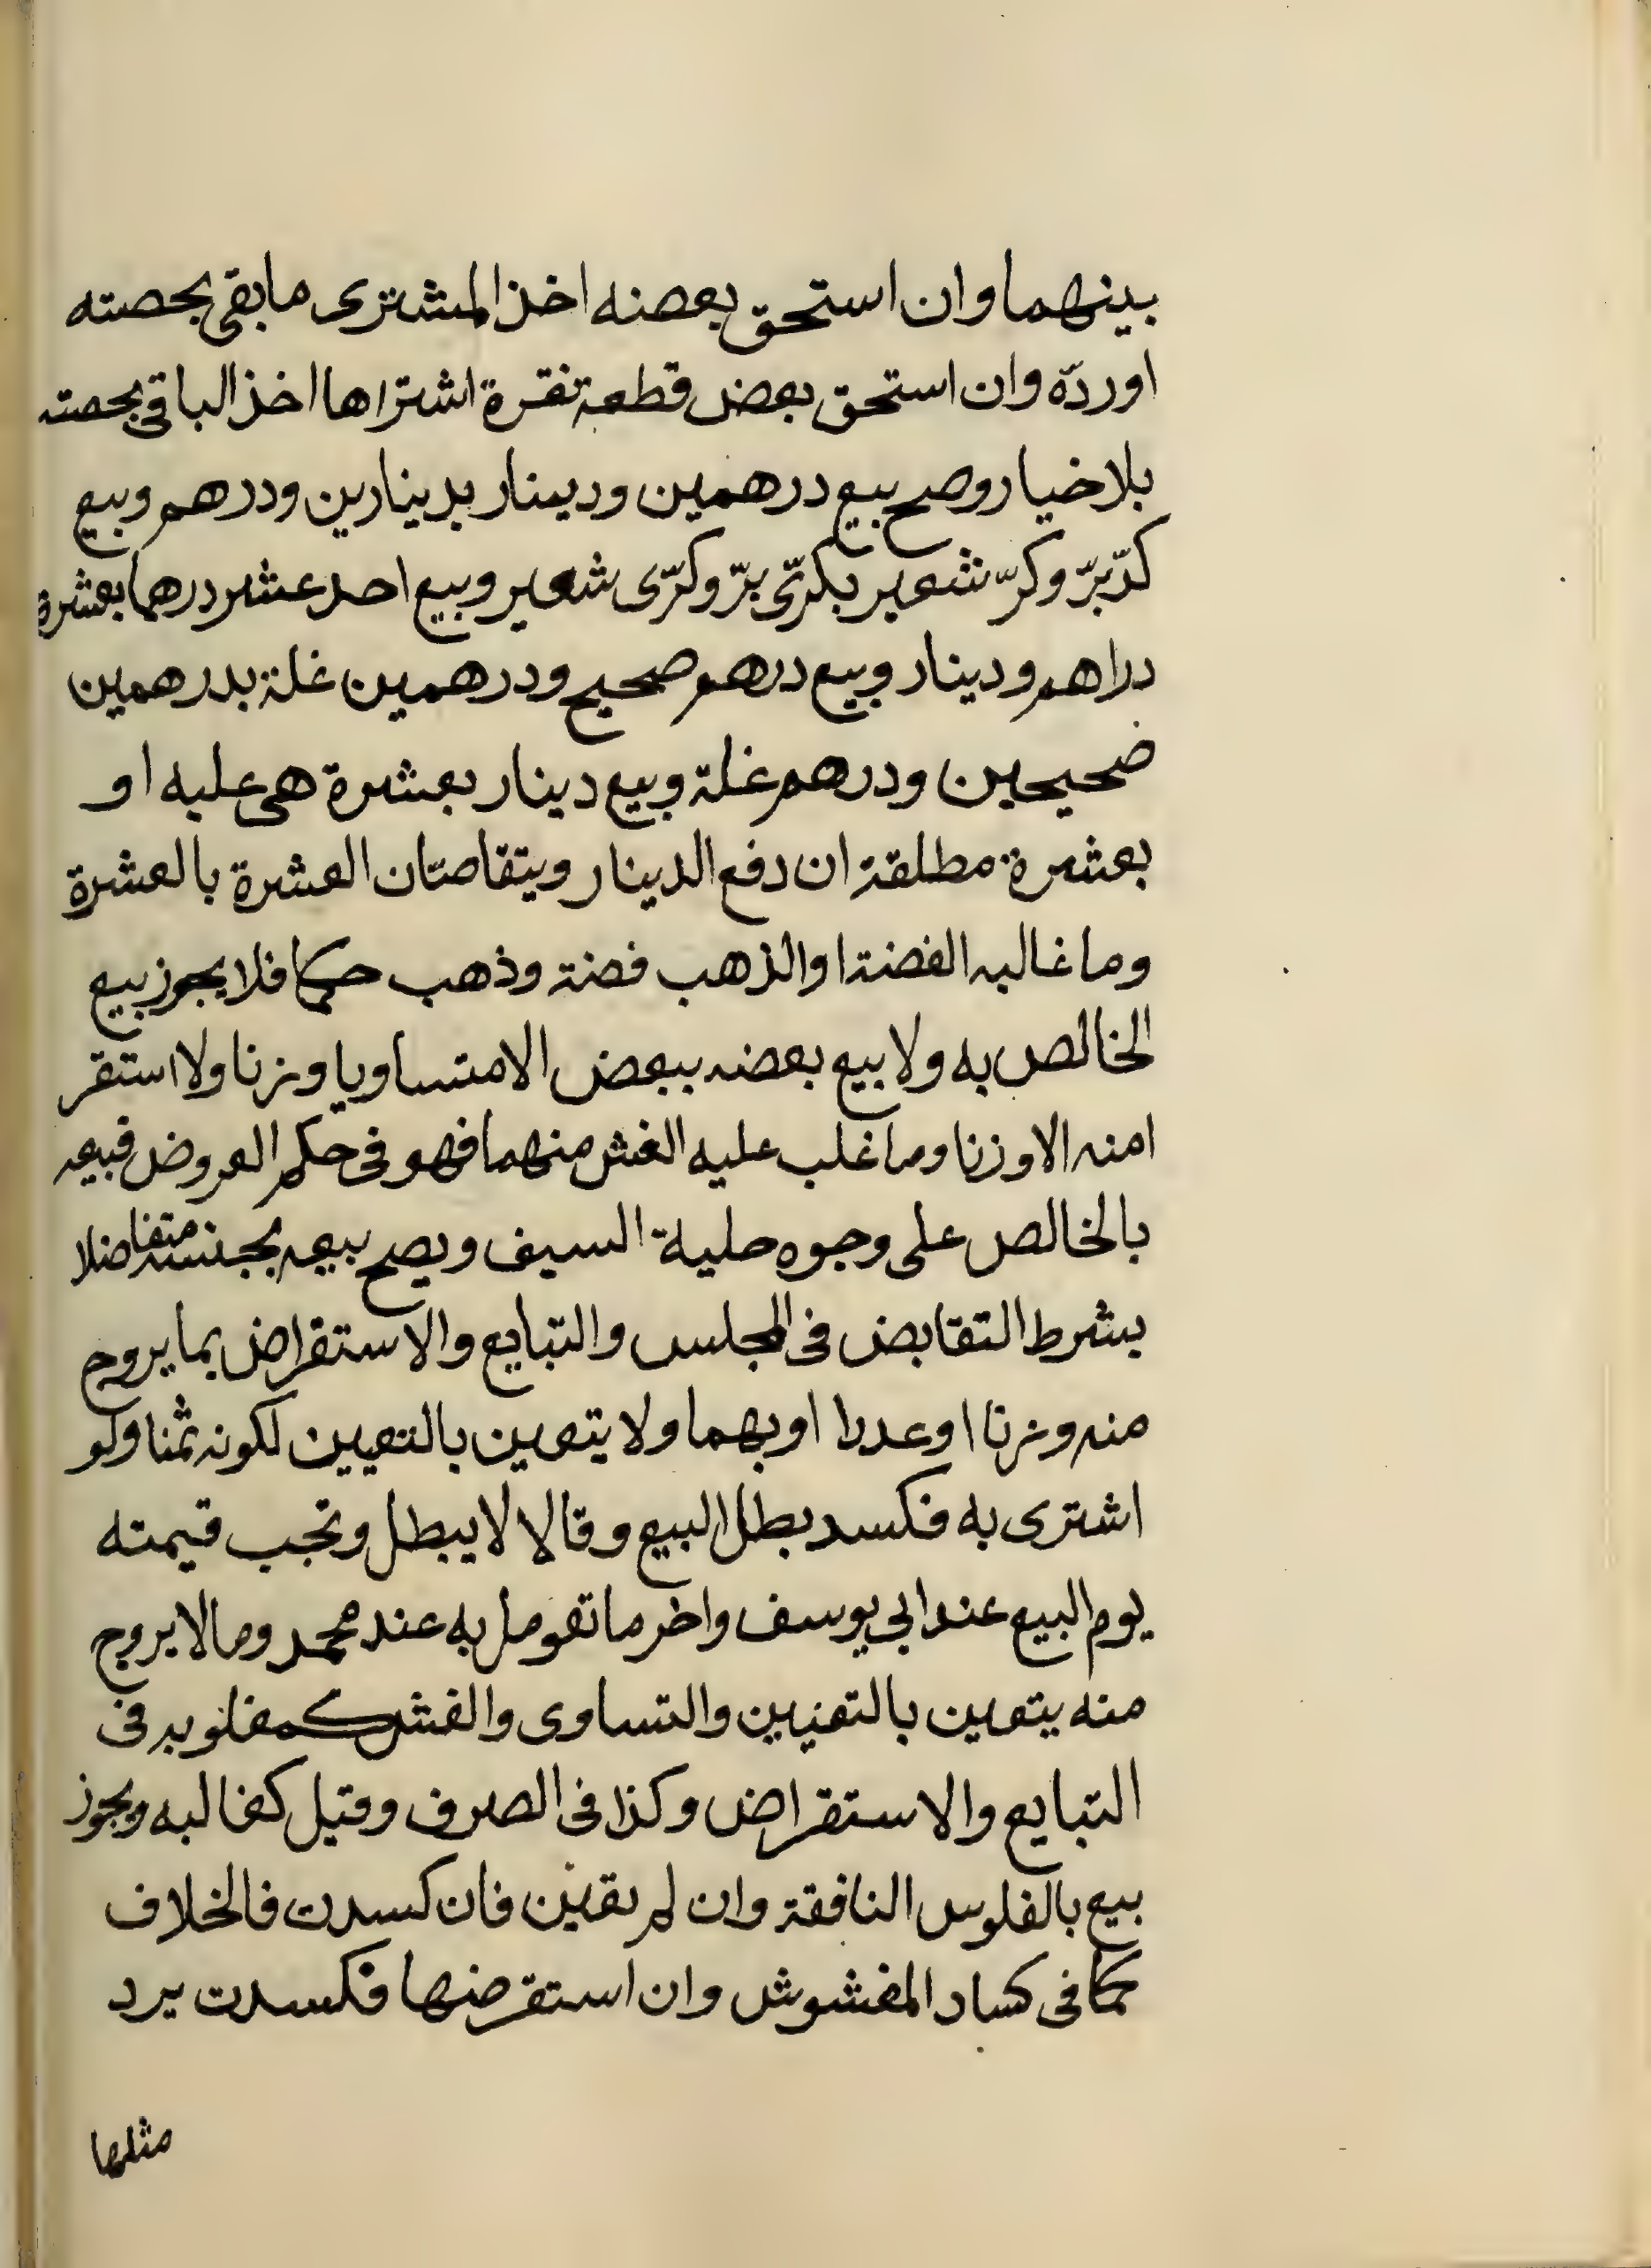 بينهما وان استحق بعضه اخذ المشترى مابقى بحصته
اوردّه وان استحق بعض قطعة نقرة اشتراها اخذ الباقى بحصته
بلا خيار وصح بيع درهمين ودينار بدينارين ودرهم وبيع
كرّ برّ وكرّ شعير بكرّى برّ وكرّى شعير وبيع احد عشر درهما بعشرة
دراهم ودينار وبيع درهم صحيح ودرهمين غلة بدرهمين
صحيحين ودرهم غلة وبيع دينار بعشرة هى عليه او
بعشرة مطلقة ان دفع الدينار ويتقاصان العشرة بالعشرة
وما غالبه الفضة او الذهب فضة وذهب حكما فلا يجوز بيع
الخالص به ولا بيع بعضه ببعض الا متساويا وزنا ولا استقر
امنه الا وزنا وما غلب عليه الغش منهما فهو فى حكم العروض فبيعه
بالخالص على وجوه حلية السيف ويصح بيعه بجنسه متفاضلا
بشرط التقابض فى المجلس والتبايع والاستقراض بما يروج
منه وزنا او عددا او بهما ولا يتعين بالتعيين لكونه ثمنا ولو
اشترى به فكسد بطل البيع وقالا لا يبطل وتجب قيمته
يوم البيع عند ابى يوسف واخر ما تعومل به عند محمد وما لا يروج
منه يتعين بالتعيين والتساوى والغش كمغلوبه فى
التبايع والاستقراض وكذا فى الصرف وقيل كغالبه ويجوز
بيع بالفلوس النافقة وان لم تعين فان كسدت فالخلاف
كما فى كساد المغشوش وان استقرضها فكسدت يرد
مثلها